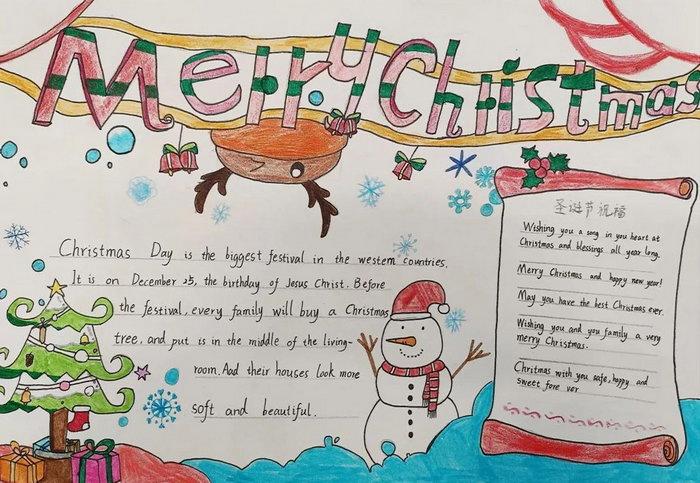 Merry Christmas
Christmas Day is the biggest festival in the western countries.
It is on December 25, the birthday of Jesus Christ. Before
the festival, every family will buy a Christmas
tree, and put is in the middle of the living-
room. And their houses look more
soft and beautiful.
圣诞节祝福
Wishing you a song in you heart at
Christmas and blessings all year long.
Merry Christmas and happy new year!
May you have the best Christmas ever.
Wishing you and you family a very
merry Christmas.
Christmas with you safe, happy and
sweet fore ver